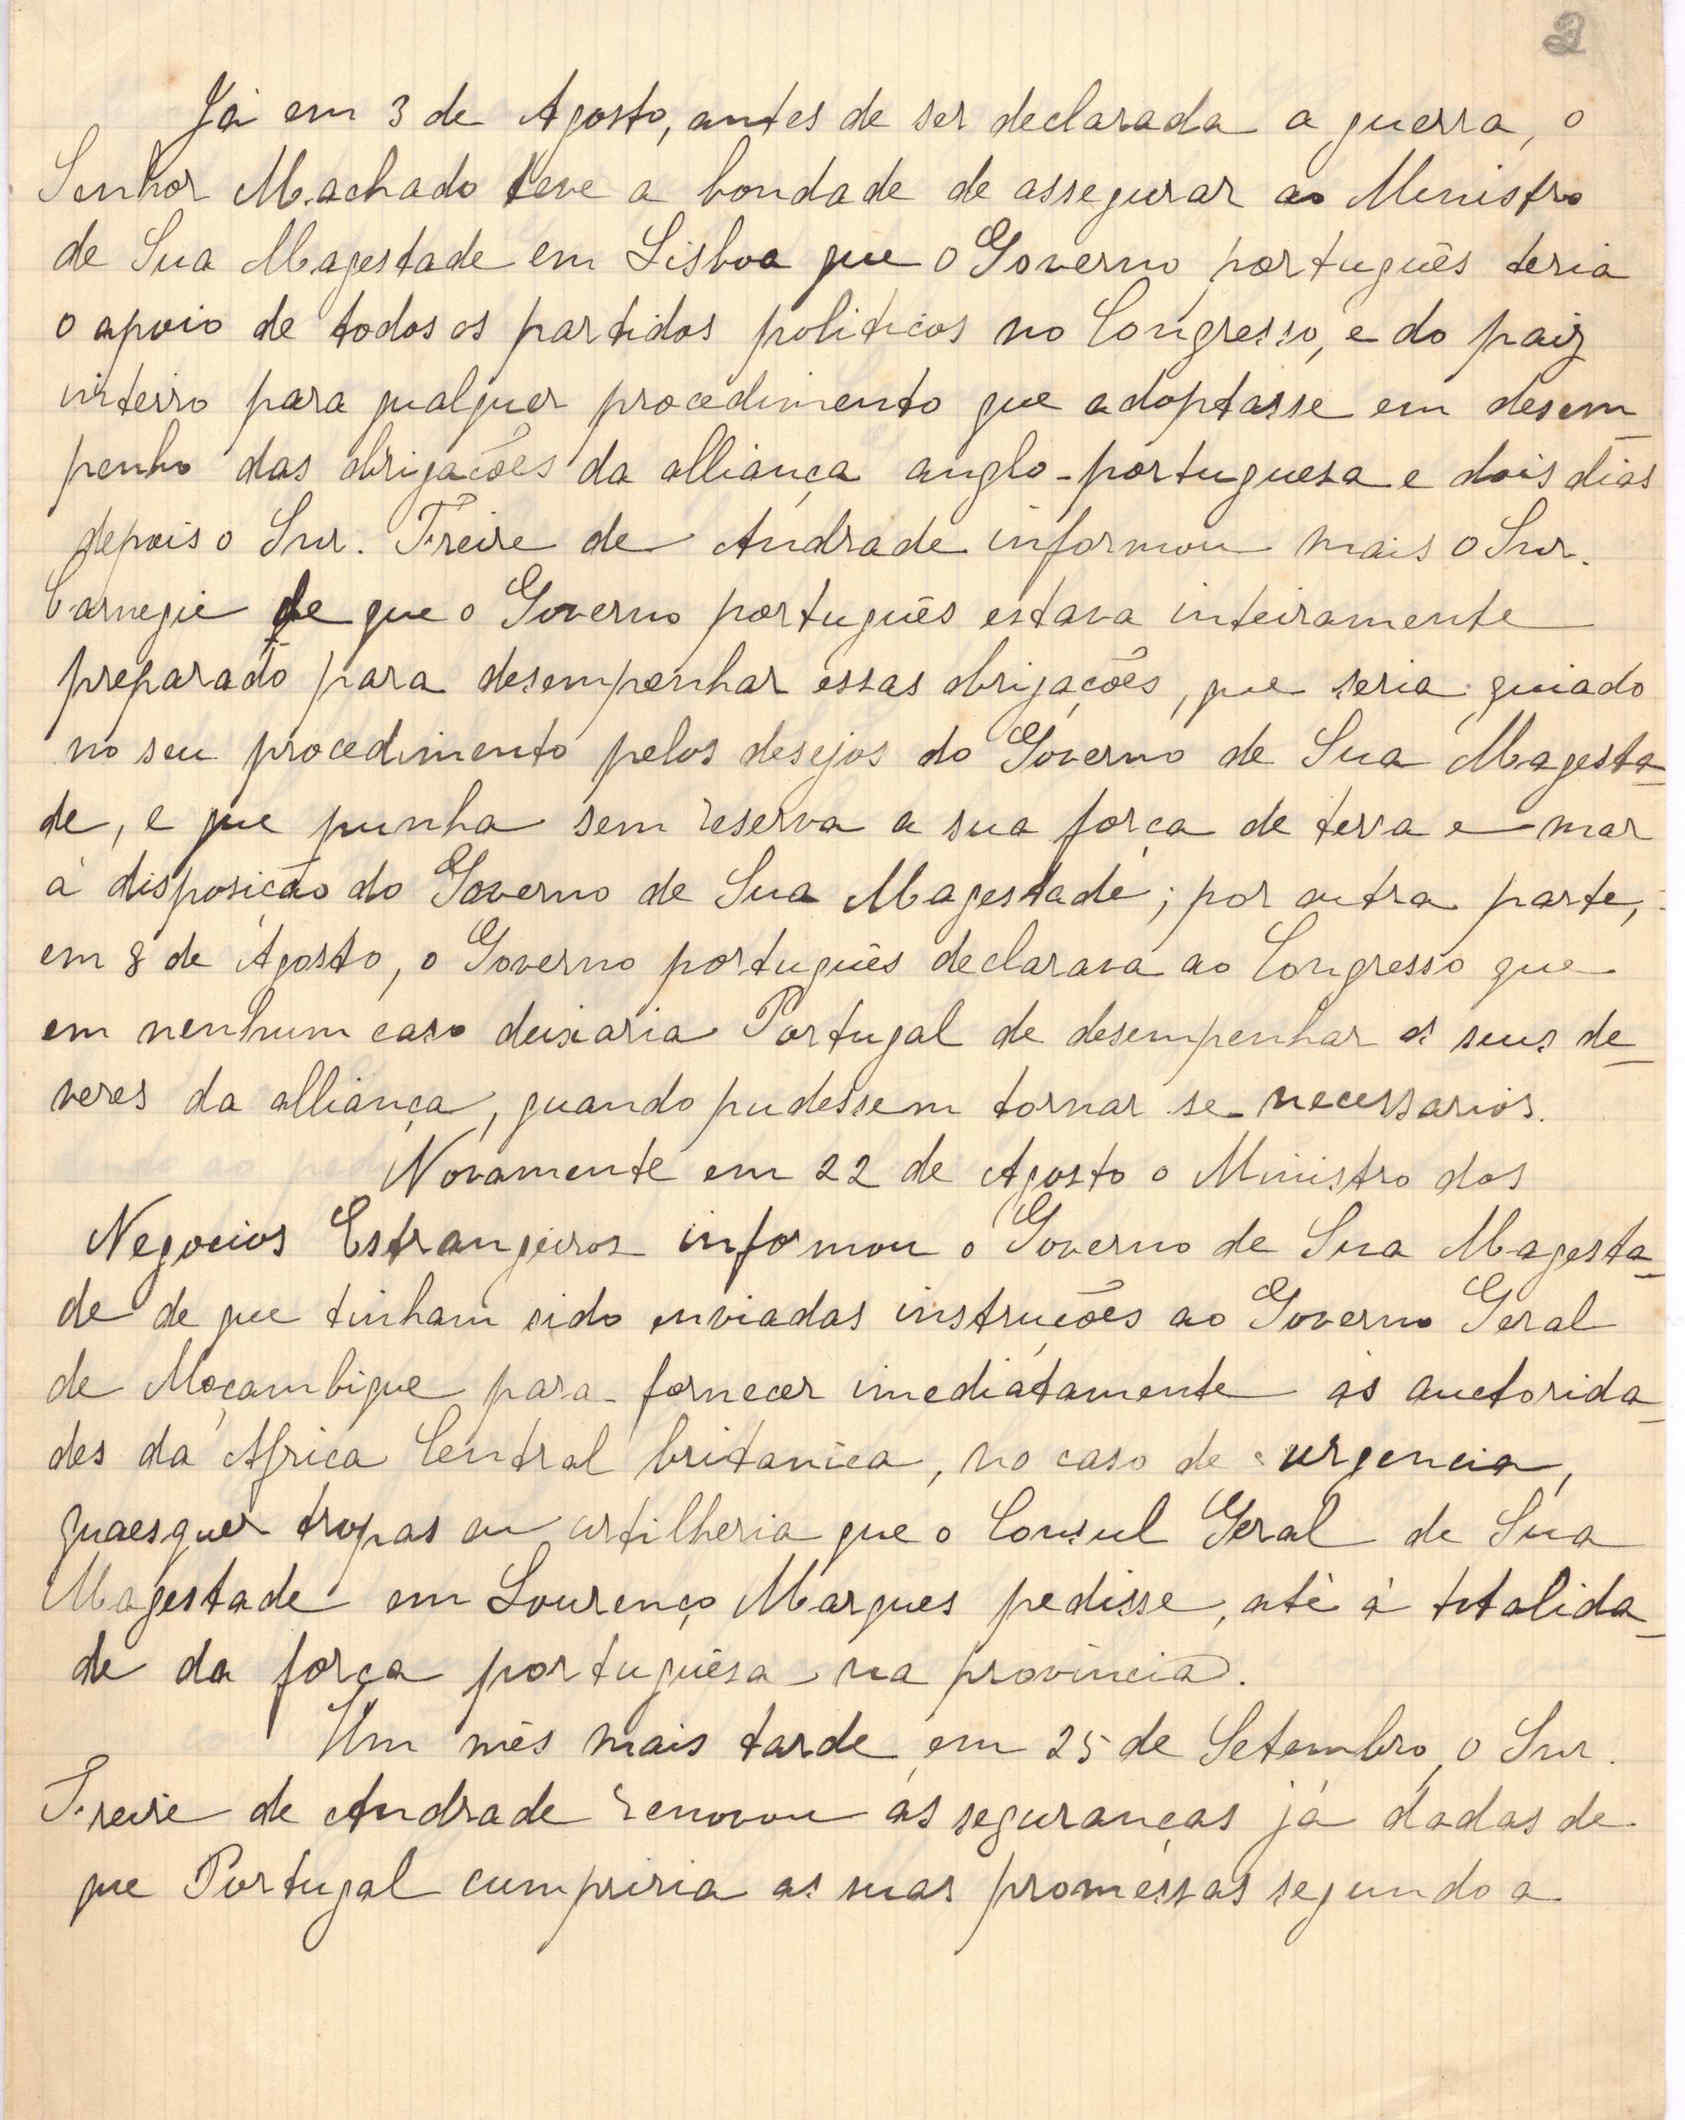 2
Já em 3 de Agosto, antes de ser declarada a guerra, o
Senhor Machado teve a bondade de assegurar ao Ministro
de Sua Magestade em Lisboa que o Governo português teria
o apoio de todos os partidos politicos no Congresso, e do paiz
inteiro para qualquer procedimento que adoptasse em desem_
penho das obrigações da alliança anglo-portuguesa e dois dias
depois o Snr. Freire de Andrade informou mais o Snr.
Carnegie de que o Governo português estava inteiramente
preparado para desempenhar essas obrigações, que seria guiado
no seu procedimento pelos desejos do Governo de Sua Magesta_
de, e que punha sem reserva a sua força de terra e mar
á disposição do Governo de Sua Magestade; por outra parte,
em 8 de Agosto, o Governo português declarava ao Congresso que
em nenhum caso deixaria Portugal de desempenhar os seus de_
veres da alliança, quando pudessem tornar se necessarios.
Novamente em 22 de Agosto o Ministro dos
Negocios Estrangeiros informou o Governo de Sua Magesta_
de de que tinham sido enviadas instruções ao Governo Geral
de Moçambique para fornecer imediatamente ás auctorida_
des da Africa Central britanica, no caso de urgencia,
quaesquer tropas ou artilheria que o Consul Geral de Sua
Magestade em Lourenço Marques pedisse, até á totalida_
de da força portuguêsa na provincia.
Um mês mais tarde, em 25 de Setembro, o Snr.
Freire de Andrade renovou as seguranças já dadas de
que Portugal cumpriria as suas promessas segundo a